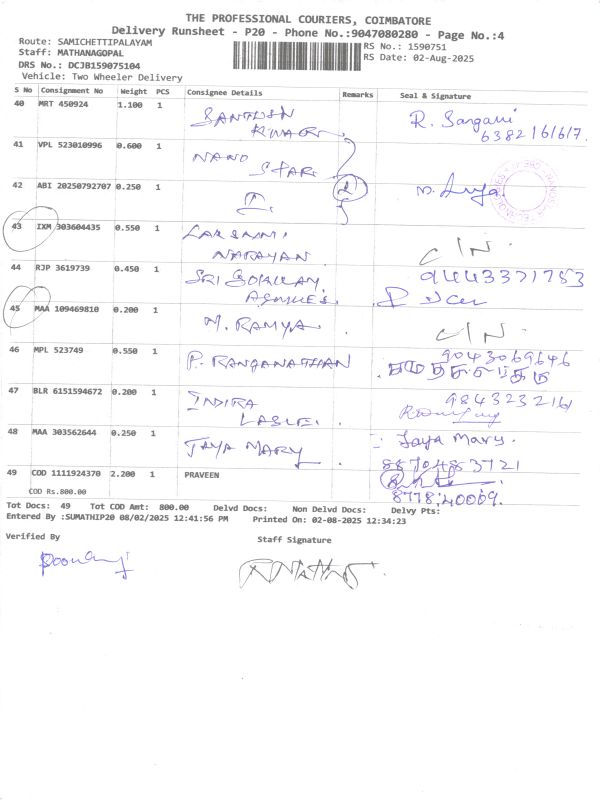 THE PROFESSIONAL COURIERS, COIMBATORE
Delivery Runsheet - P20 - Phone No.:9047080280 - Page No.:4
Route: SAMICHETTIPALAYAM
Staff: MATHANAGOPAL
DRS No.: DCJB159075104
Vehicle: Two Wheeler Delivery
RS No.: 1590751
RS Date: 02-Aug-2025
S No Consignment No Weight PCS Consignee Details Remarks Seal & Signature
40 MRT 450924 1.100 1 SANTHOSH KUMAR R. Sangavi
6382161617.
41 VPL 523010996 0.600 1 NANO STAR
42 ABI 20250792707 0.250 1
43 IXM 303604435 0.550 1 LAKSHMI NARAYAN C/N.
44 RJP 3619739 0.450 1 SRI GOKULAM 9443371753
45 MAA 109469810 0.200 1 M. RAMYA. C/N.
46 MPL 523749 0.550 1 P. RANGANATHAN 9043069646
47 BLR 6151594672 0.200 1 INDIRA 984323216
48 MAA 303562644 0.250 1 JAYA MARY Jaya Mary.
8870483721
49 COD 1111924370 2.200 1 PRAVEEN
COD Rs.800.00
Tot Docs: 49 Tot COD Amt: 800.00 Delvd Docs: Non Delvd Docs: Delvy Pts:
Entered By :SUMATHIP20 08/02/2025 12:41:56 PM Printed On: 02-08-2025 12:34:23
Verified By Staff Signature